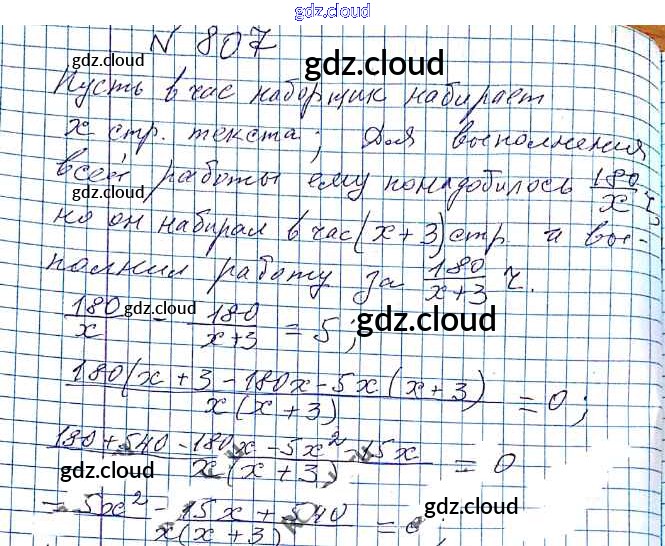 gdz.cloud
N 807
gdz.cloud
gdz.cloud
Пусть в час наборщик набирает
x стр. текста; Для выполнения
gdz.cloud
всей работы ему понадобилось 180/x ч,
gdz.cloud
но он набирал в час (x+3) стр. и вы-
полнил работу за 180/(x+3) ч.
180/x - 180/(x+3) = 5;
gdz.cloud
gdz.cloud
(180(x+3-180x-5x(x+3))/(x(x+3)) = 0;
(180+540-180x-5x²-15x)/(x(x+3)) = 0
gdz.cloud
gdz.cloud
= (5x²-15x+540)/(x(x+3)) = 0;
gdz.cloud
gdz.cloud